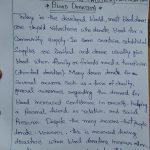 Blood Donation
Today in the developed world, most blood donors
are unpaid volunteers who donate blood for a
community supply. In some countries established
supplies are limited and donors usually give
blood when family or friends need a transfusion
(directed donation). Many donors donate for
several reasons such as a form of charity,
general awareness regarding the demand for
blood, increased confidence in oneself, helping
a personal friend or relative and social
pressure. Despite the many reasons that people
donate,
donate. However, this is reversed during
disasters when blood donations increase often